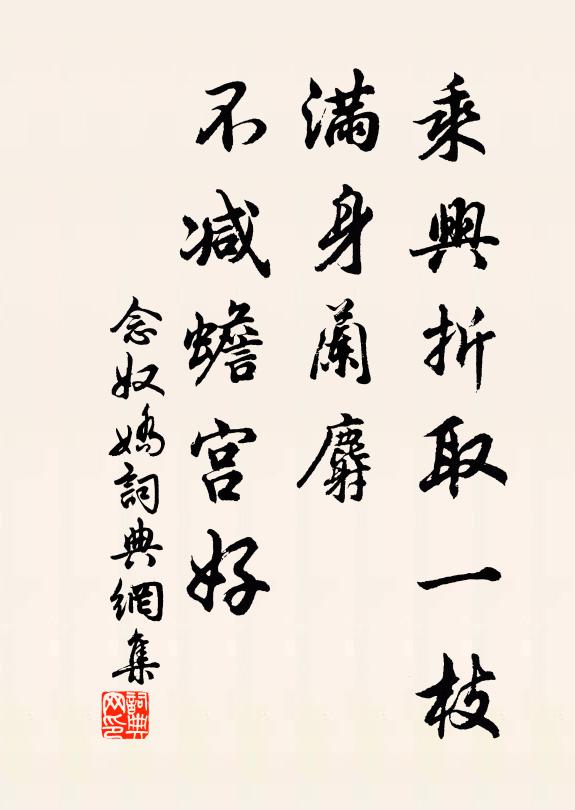 乘興折取一枝
滿身蘭麝
不減蟾宮好
念奴嬌詞典網集
詞典網印